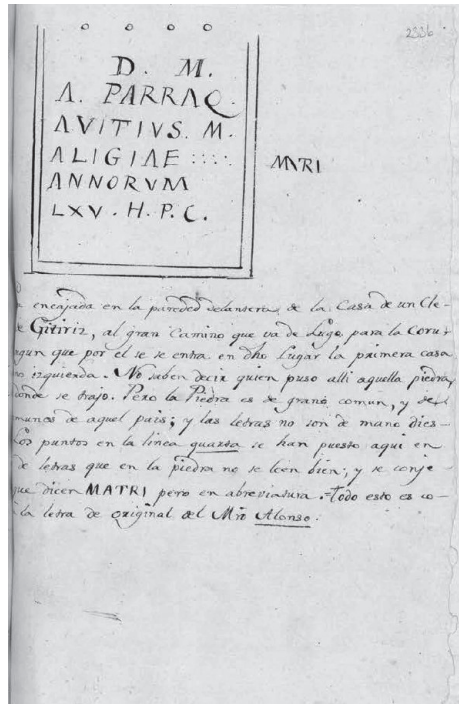 2336
D. M.
A. PARRAQ.
AVITIVS. M.
ALIGIAE ::::
MATRI
ANNORVM
LXV. H. P. C.
encajada en la pared delantera, de la Casa de un Cle-
Gitiriz, al gran Camino que va de Lugo, para la Coru-
segun que por el se se entra en dho Lugar la primera casa
no izquierda. No saben decir quien puso alli aquella piedra,
donde se trajo. Pero la Piedra es de grano comun, y de
munas de aquel pais; y las letras no son de mano dies-
Los puntos en la linea quarta se han puesto aqui en
de letras que en la piedra no se leen bien; y se conje
que dicen MATRI pero en abreviatura. Todo esto es co-
la letra de original del Mro Alonso.